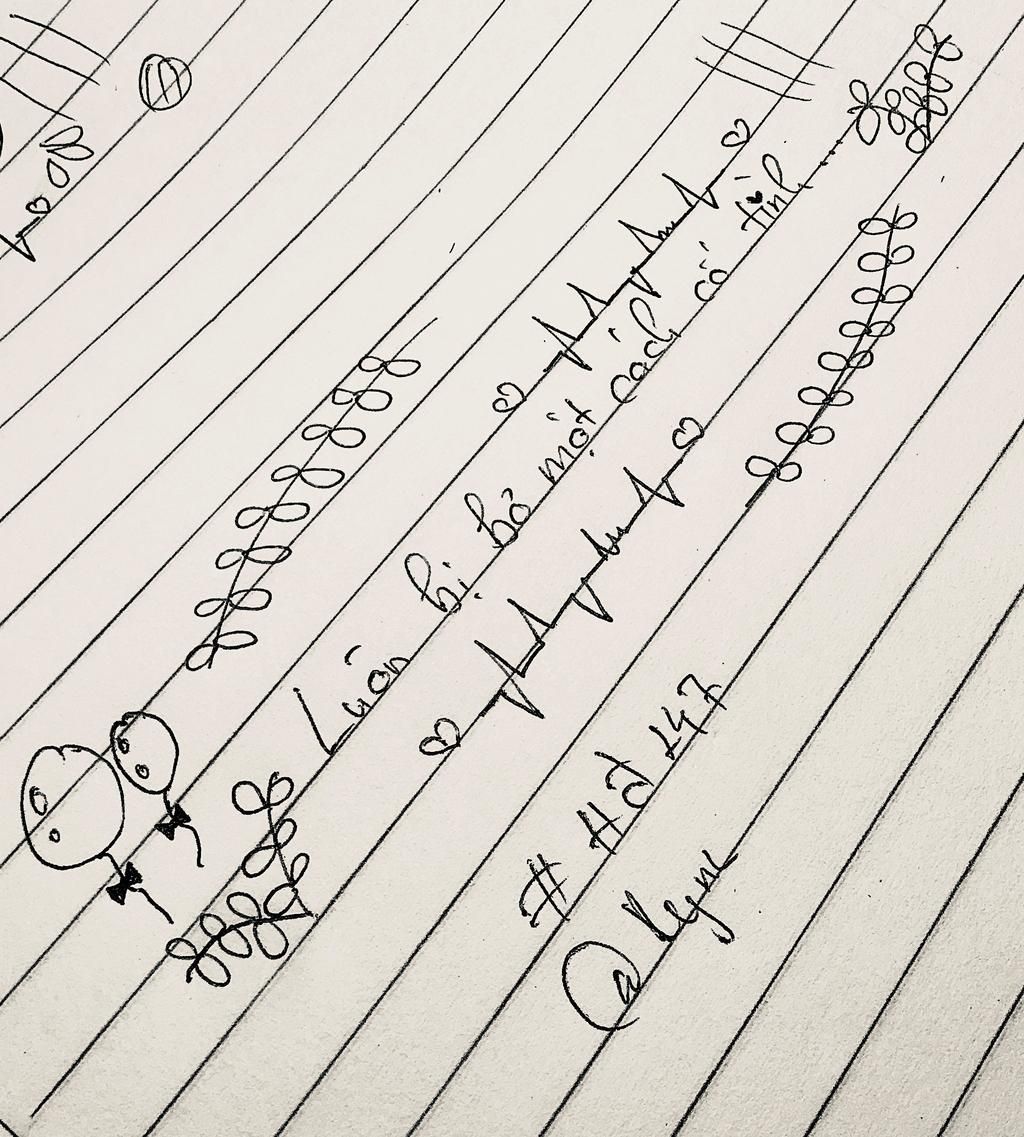 Luôn bị bỏ một cách cố tình....
# HD 147
@ Kynk